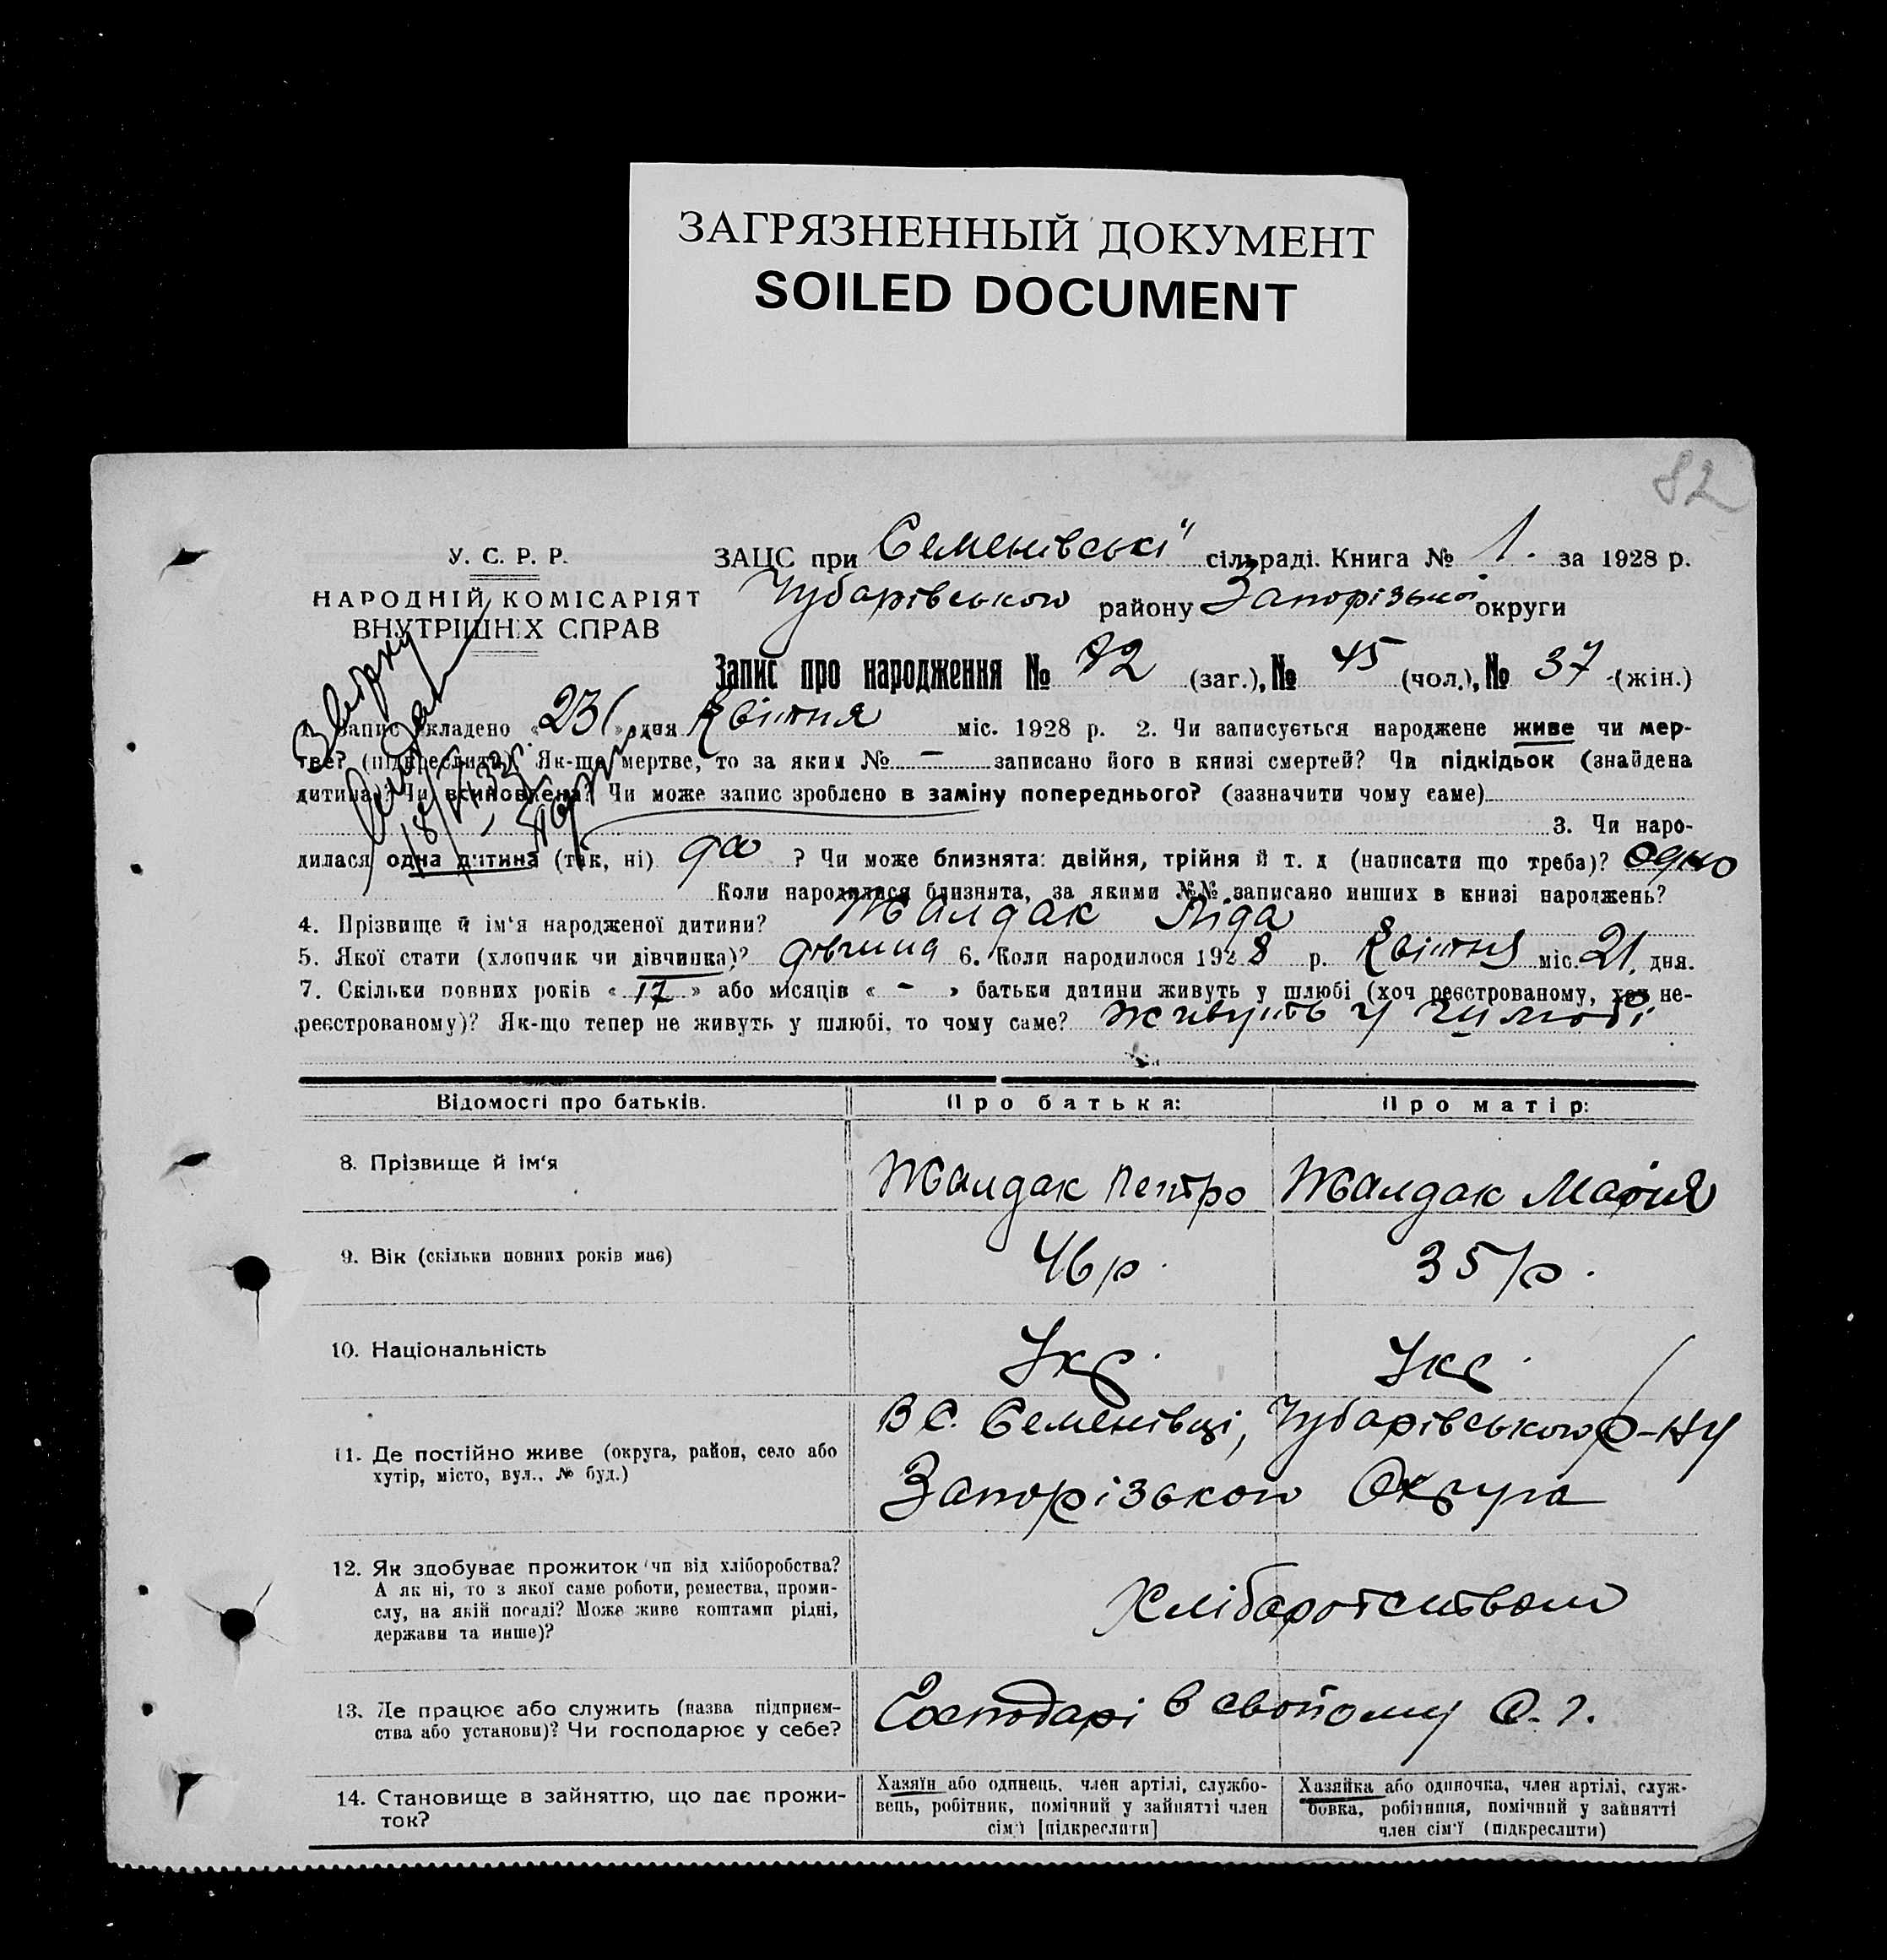 ЗАГРЯЗНЕННЫЙ ДОКУМЕНТ
SOILED DOCUMENT
82
У. С. Р. Р.
НАРОДНІЙ КОМІСАРІЯТ
ВНУТРІШНІХ СПРАВ
ЗАЦС при Семенівські сільраді. Книга № 1. за 1928 р.
Чубарівського району Запорізької округи
Запис про народження № 82 (заг.), № 45 (чол.), № 37 (жін.)
1. Запис складено «23» дня Квітня міс. 1928 р. 2. Чи записується народжене живе чи мер-
тве? (підкреслити). Як-що мертве, то за яким № — записано його в книзі смертей? Чи підкідьок (знайдена
дитина)? Чи всиновлена? Чи може запис зроблено в заміну попереднього? (зазначити чому саме)
3. Чи наро-
дилася одна дитина (так, ні) да ? Чи може близнята: двійня, трійня й т. д (написати що треба)? одно
Коли народилися близнята, за якими №№ записано инших в книзі народжень?
4. Прізвище й ім'я народженої дитини? Жалдак Ліда
5. Якої стати (хлопчик чи дівчинка)? дівчина 6. Коли народилося 1928 р. Квітня міс. 21. дня.
7. Скільки повних років «17» або місяців « - » батьки дитини живуть у шлюбі (хоч реєстрованому, хоч не-
реєстрованому)? Як-що тепер не живуть у шлюбі, то чому саме? живуть у шлюбі
Відомості про батьків.
Про батька:
Про матір:
8. Прізвище й ім'я
Жалдак Петро
Жалдак Марія
9. Вік (скільки повних років має)
46 р.
35 р.
10. Національність
Укр.
Укр.
11. Де постійно живе (округа, район, село або
хутір, місто, вул., № буд.)
В С. Семенівці, Чубарівського р-ну
Запорізького Округа
12. Як здобуває прожиток чи від хліборобства?
А як ні, то з якої саме роботи, ремества, проми-
слу, на якій посаді? Може живе коштами рідні,
держави та инше)?
13. Де працює або служить (назва підприєм-
ства або установи)? Чи господарює у себе?
Господарі в свойому
14. Становище в зайняттю, що дає прожи-
ток?
Хазяїн або одинець, член артілі, службо-
вець, робітник, помічний у зайнятті член
сім'ї [підкреслити]
Хазяйка або одиночка, член артілі, служ-
бовка, робітниця, помічний у зайнятті
член сім'ї (підкреслити)